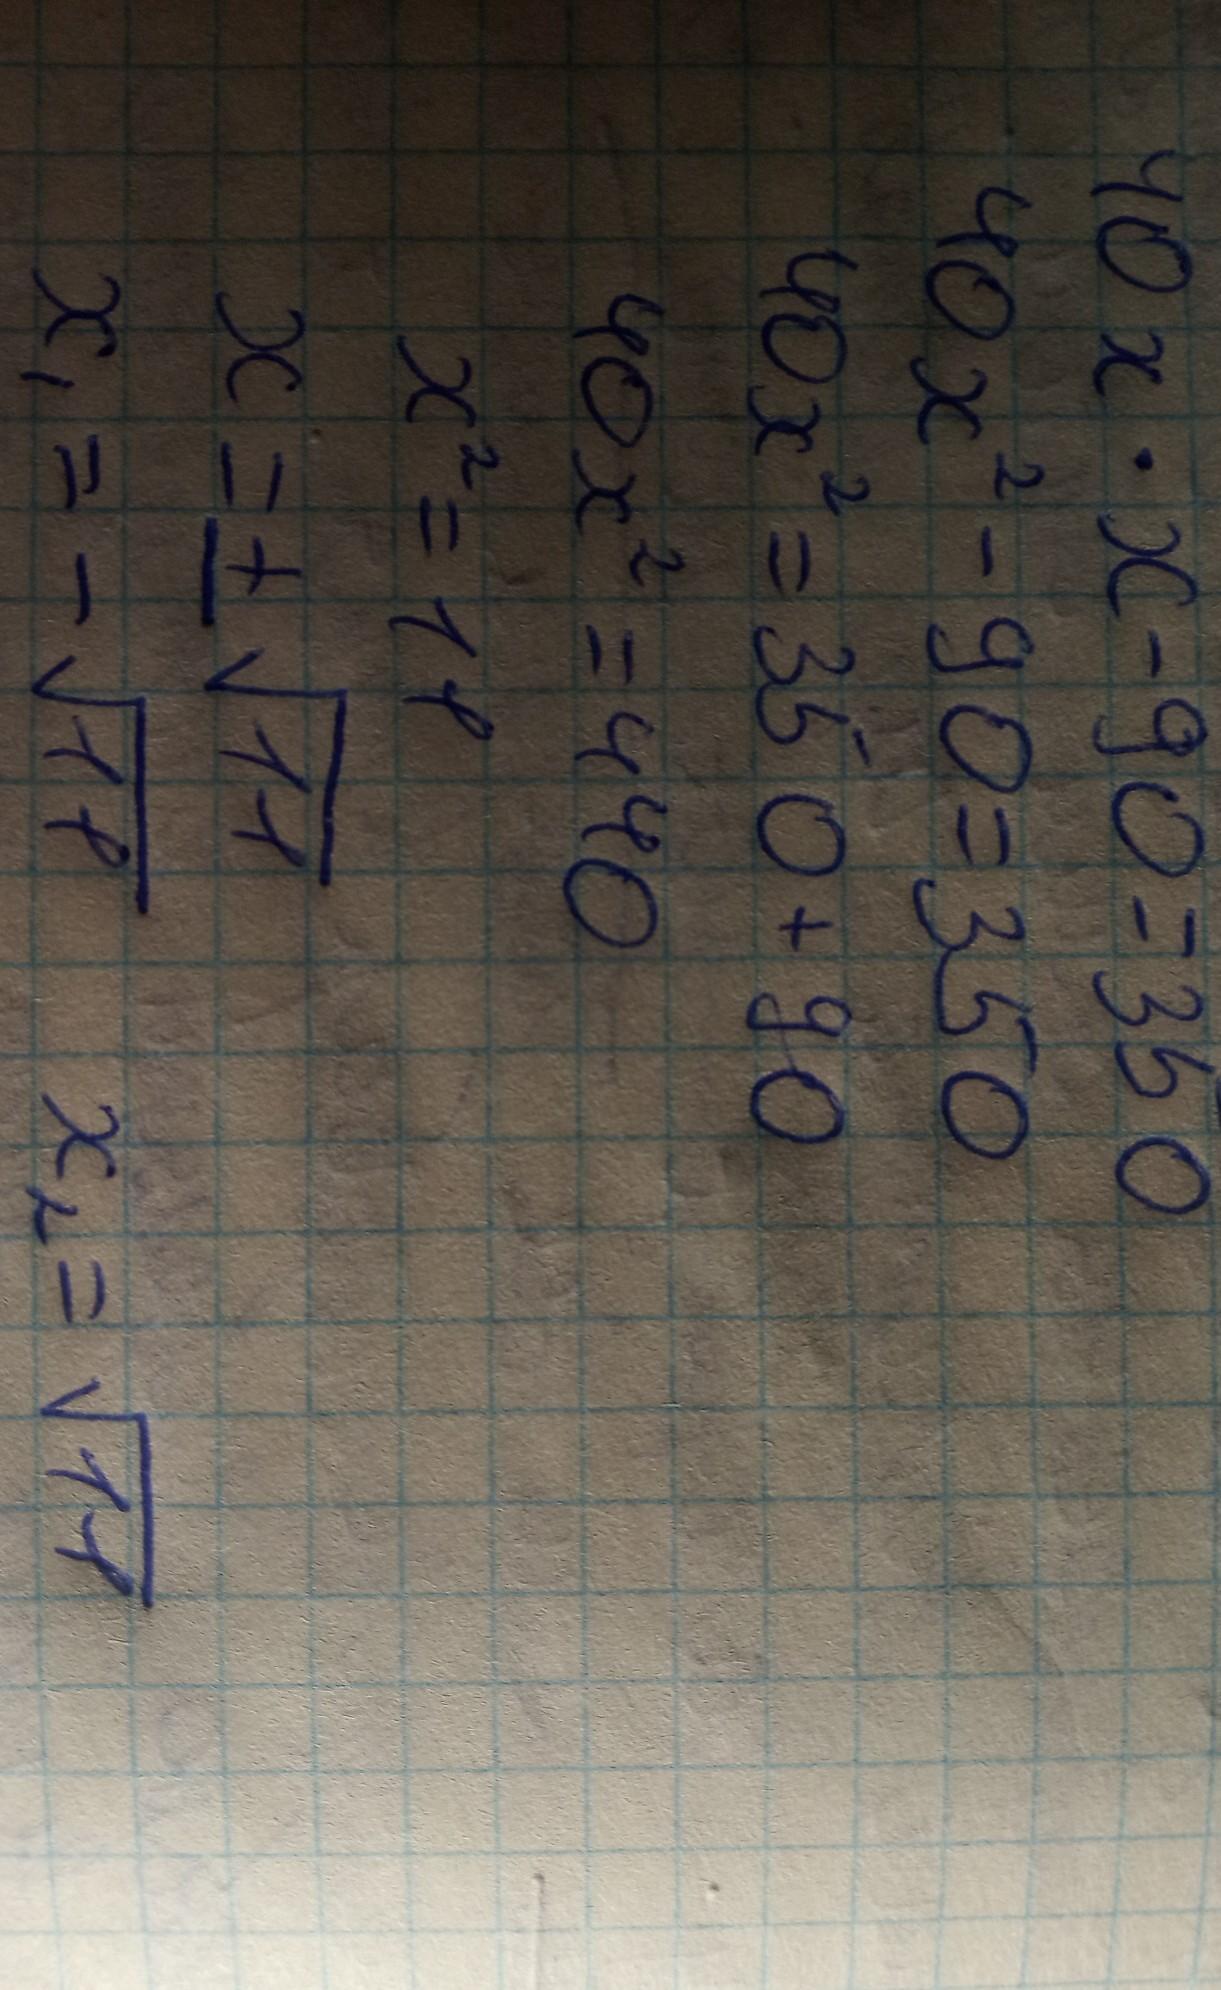 40x · x - 90 = 350
40x² - 90 = 350
40x² = 350 + 90
40x² = 440
x² = 11
x = ±√11
x₁ = -√11 x₂ = √11